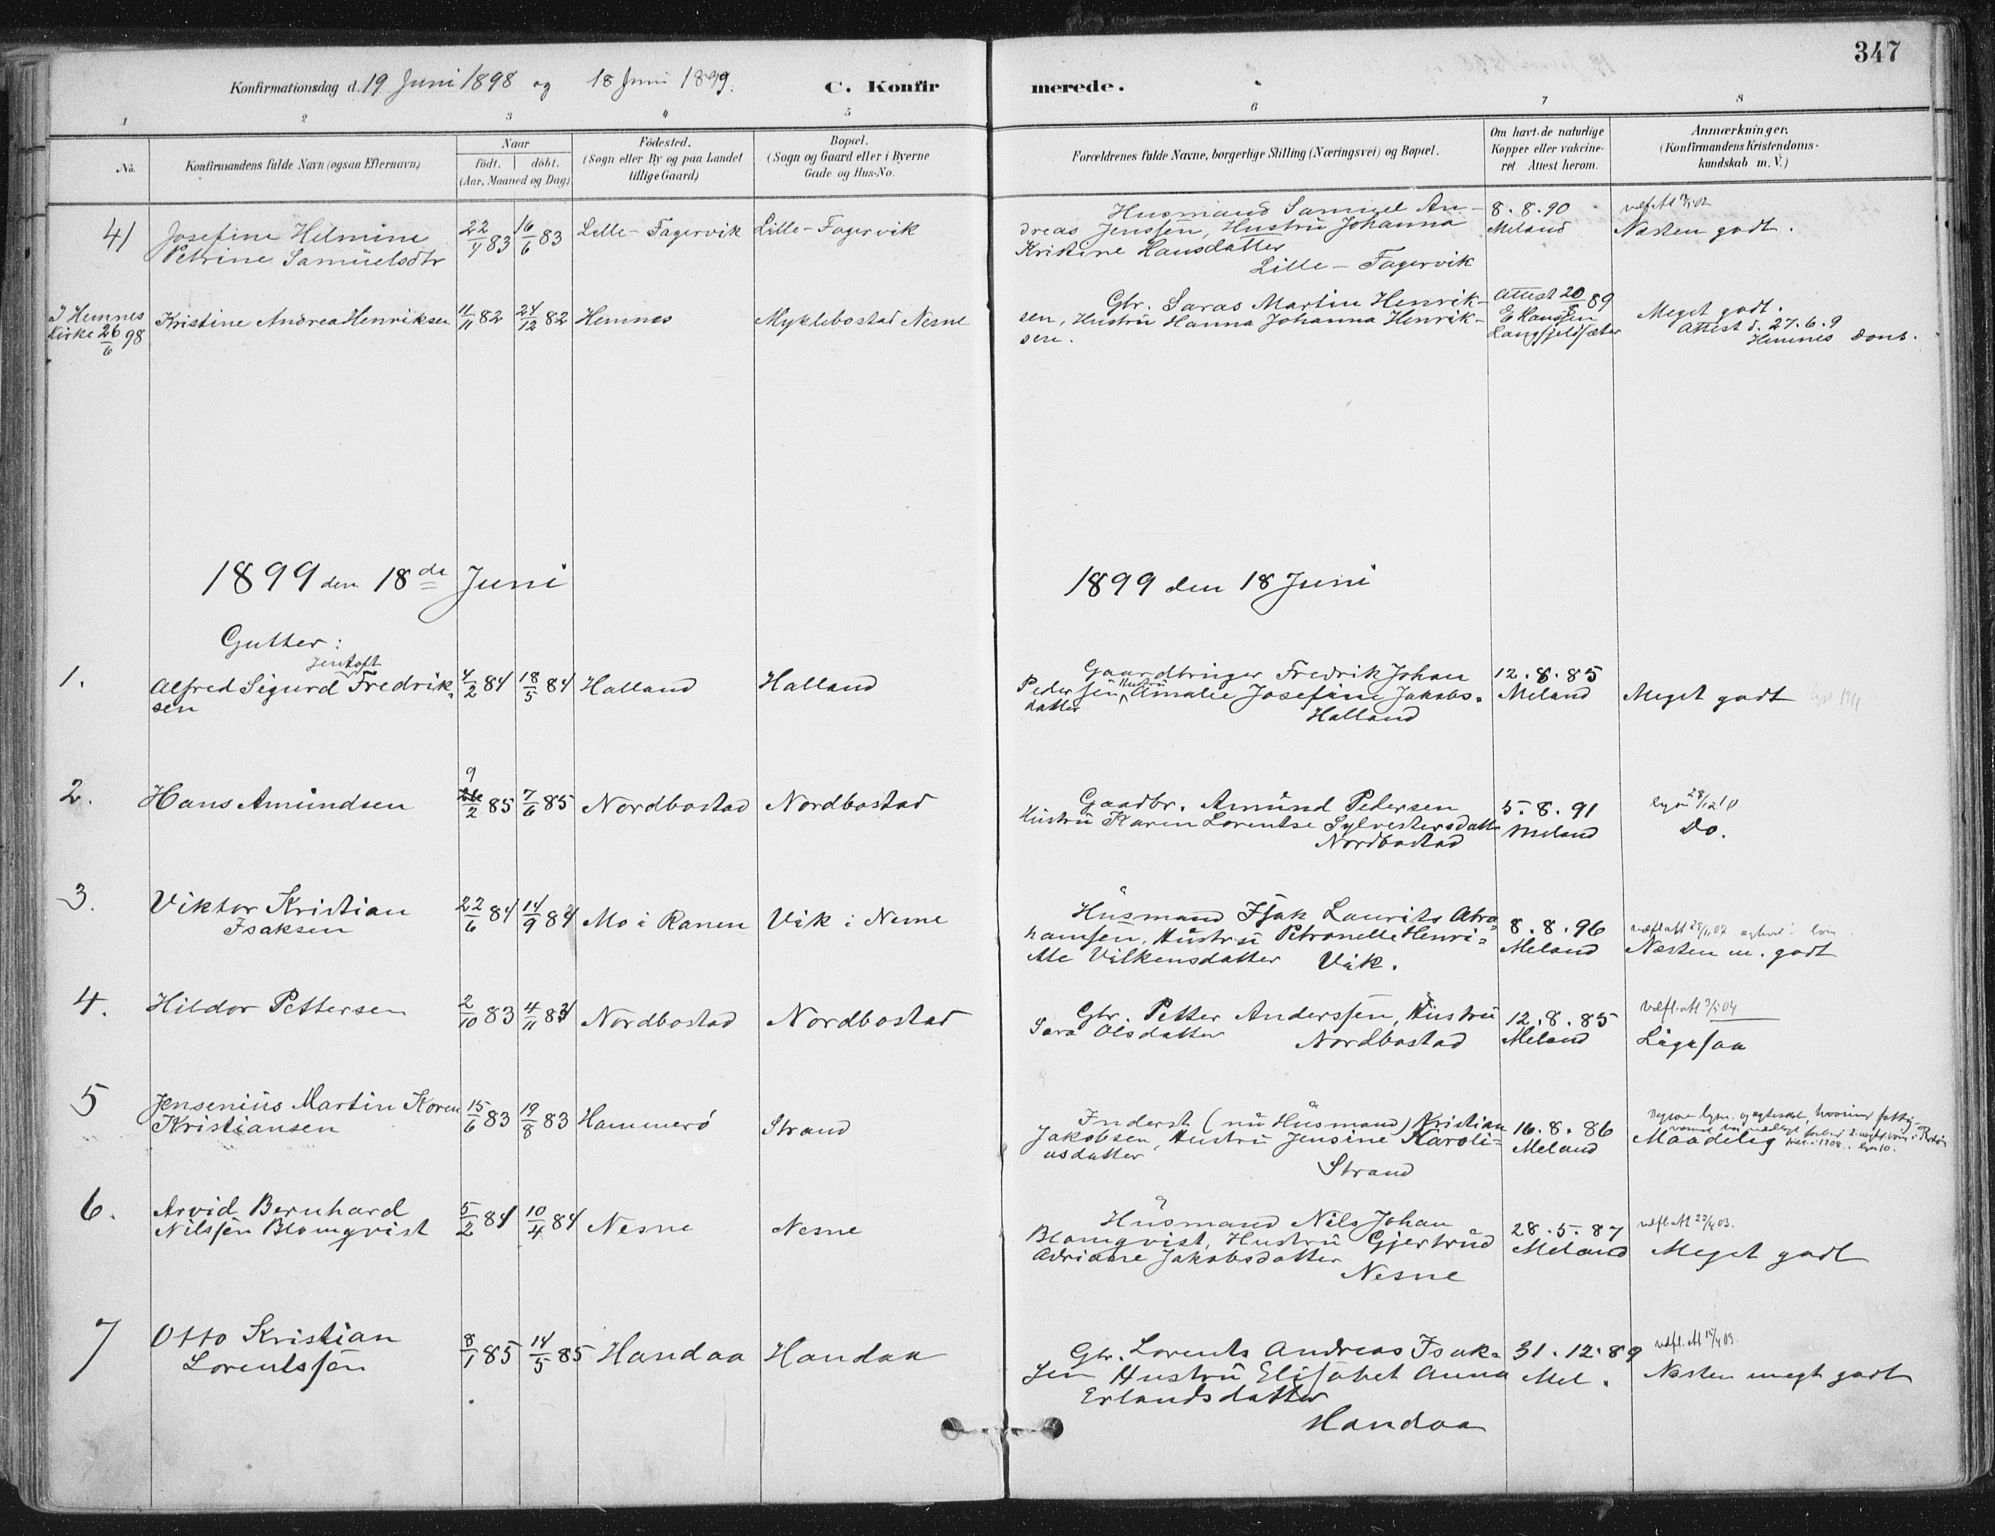 347
Konfirmationsdag d. 19 Juni 1898 og 18 Juni 1899. C. Konfirmerede.
1 2 3 4 5 6 7 8
No.
Konfirmandens fulde Navn (ogsaa Efternavn)
Naar
født. | døbt.
(Aar, Maaned og Dag)
Fødested.
(Sogn eller By og paa Landet
tillige Gaard)
Bopæl.
(Sogn og Gaard eller i Byerne
Gade og Hus-No.
Forældrenes fulde Navne, borgerlige Stilling (Næringsvei) og Bopæl.
Om havt de naturlige
Kopper eller vakcine-
ret Attest herom.
Anmærkninger.
(Konfirmandens Kristendoms-
kundskab m. V.)
41 Josefine Helmine
Petrine Samüelsdtr
22/1 83 16/6 83 Lille-Fagervik Lille-Fagervik
Husmand Samuel An-
dreas Jenssen, Hustrü Johanna
Kristine Hansdatter
Lille-Fagervik
8.8.90
Meland
Næsten godt.
I Hemnes
Kirke 26/6 98
Kristine Andrea Henriksen 11/11 82 24/12 82 Hemnes Myklebostad Nesne
Gbr. Saras Martin Henrik-
sen, Hustrü Hanna Johanna Henrik-
sen.
Attest 20/8 89
E Hanssen
Langfjeldsæter
Meget godt.
Attest d. 27.6.9
Hemnes Dons.
1899 den 18de Juni
1899 den 18 Juni
Gutter:
1. Alfred Sigurd Jentoft Fredrik-
sen
4/2 84 18/5 84 Halland Halland
Gaardbruger Fredrik Johan
Pedersen, Hustrü Amalie Josefine Jakobs-
datter
Halland
12.8.85
Meland
Meget godt
2. Hans Amündsen 9/2 85 7/6 85 Nordbostad Nordbostad
Gaadbr. Amünd Pedersen
Hustrü Karen Lorentse Sylvestersdatt
Nordbostad
5.8.91
Meland
Do.
3. Viktor Kristian
Isaksen
22/6 84 14/9 84 Mo i Ranen Vik i Nesne
Hüsmand Isak Laurits Abra-
hamsen, Hüstrü Petronelle Henri-
ette Vilkensdatter Vik.
8.8.96
Meland
Næsten m. godt
4. Hildor Pettersen 2/10 83 4/11 83 Nordbostad Nordbostad
Gbr. Petter Anderssen, Hüstrü
Sara Olsdatter
Nordbostad
12.8.85
Meland
Ligesaa
5 Jensenius Martin Koren
Kristiansen
15/6 83 19/8 83 Hammerö Strand
Inderst (nü Hüsmand) Kristian
Jakobsen, Hustrü Jensine Karoli-
usdatter
Strand
16.8.86
Meland
Maadelig
6. Arvid Bernhard
Nilssen Blomqvist
5/2 84 10/4 84 Nesne Nesne
Hüsmand Nils Johan
Blomqvist, Hustrü Gjertrüd
Adriane Jakobsdatter
Nesne
28.5.87
Meland
Meget godt
7 Otto Kristian
Lorentssen
8/1 85 14/5 85 Handaa Handaa
Gbr. Lorents Andreas Isak-
sen Hustrü Elisabet Anna
Erlandsdatter
Handaa
31.12.89
Mel.
Næsten megt godt